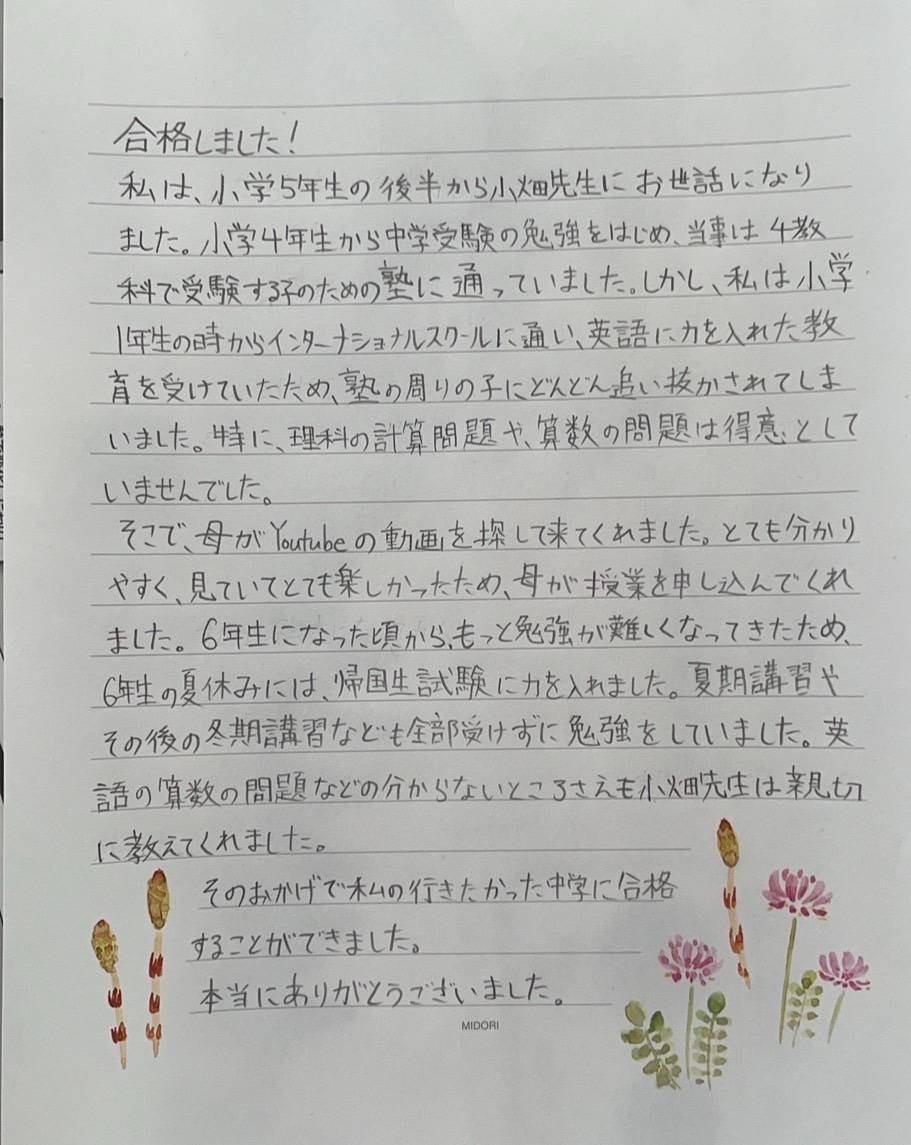 合格しました!
私は、小学5年生の後半から小畑先生にお世話になり
ました。小学4年生から中学受験の勉強をはじめ、当事は4教
科で受験する子のための塾に通っていました。しかし、私は小学
1年生の時からインターナショナルスクールに通い、英語に力を入れた教
育を受けていたため、塾の周りの子にどんどん追い抜かされてしま
いました。特に、理科の計算問題や、算数の問題は得意として
いませんでした。
そこで、母がYoutubeの動画を探して来てくれました。とても分かり
やすく、見ていてとても楽しかったため、母が授業を申し込んでくれ
ました。6年生になった頃から、もっと勉強が難しくなってきたため、
6年生の夏休みには、帰国生試験に力を入れました。夏期講習や
その後の冬期講習なども全部受けずに勉強をしていました。英
語の算数の問題などの分からないところさえも小畑先生は親切
に教えてくれました。
そのおかげで私の行きたかった中学に合格
することができました。
本当にありがとうございました。
MIDORI